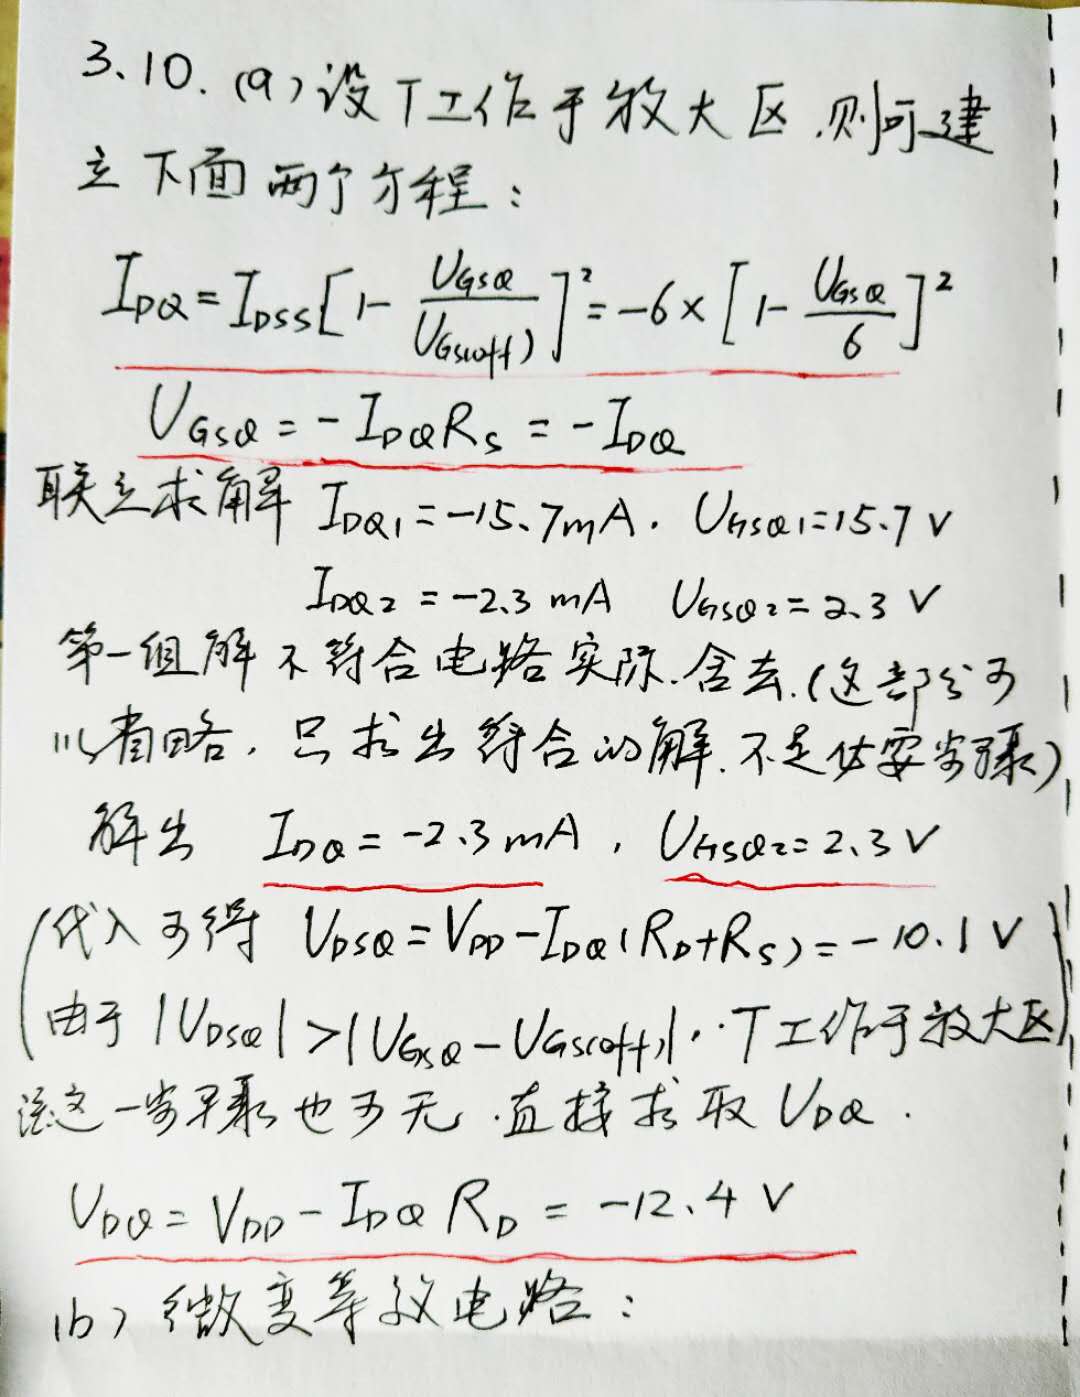 3.10.(a)设T工作于放大区,则可建
立下面两个方程:
I_DQ = I_DSS[1- U_GSQ/U_GS(off)]² = -6×[1- U_GSQ/6]²
U_GSQ = -I_DQ R_S = -I_DQ
联立求解 I_DQ1=-15.7mA. U_GSQ1=15.7V
I_DQ2=-2.3mA U_GSQ2=2.3V
第一组解不符合电路实际.舍去.(这部分可
以省略,只求出符合的解.不是必要步骤)
解出 I_DQ=-2.3mA, U_GSQ2=2.3V
(代入可得 U_DSQ=V_DD-I_DQ(R_D+R_S)=-10.1V
由于|U_DSQ|>|U_GSQ-U_GS(off)|,∴T工作于放大区)
这一步骤也可无.直接求取U_DQ.
U_DQ=V_DD-I_DQ R_D=-12.4V
(b)微变等效电路: